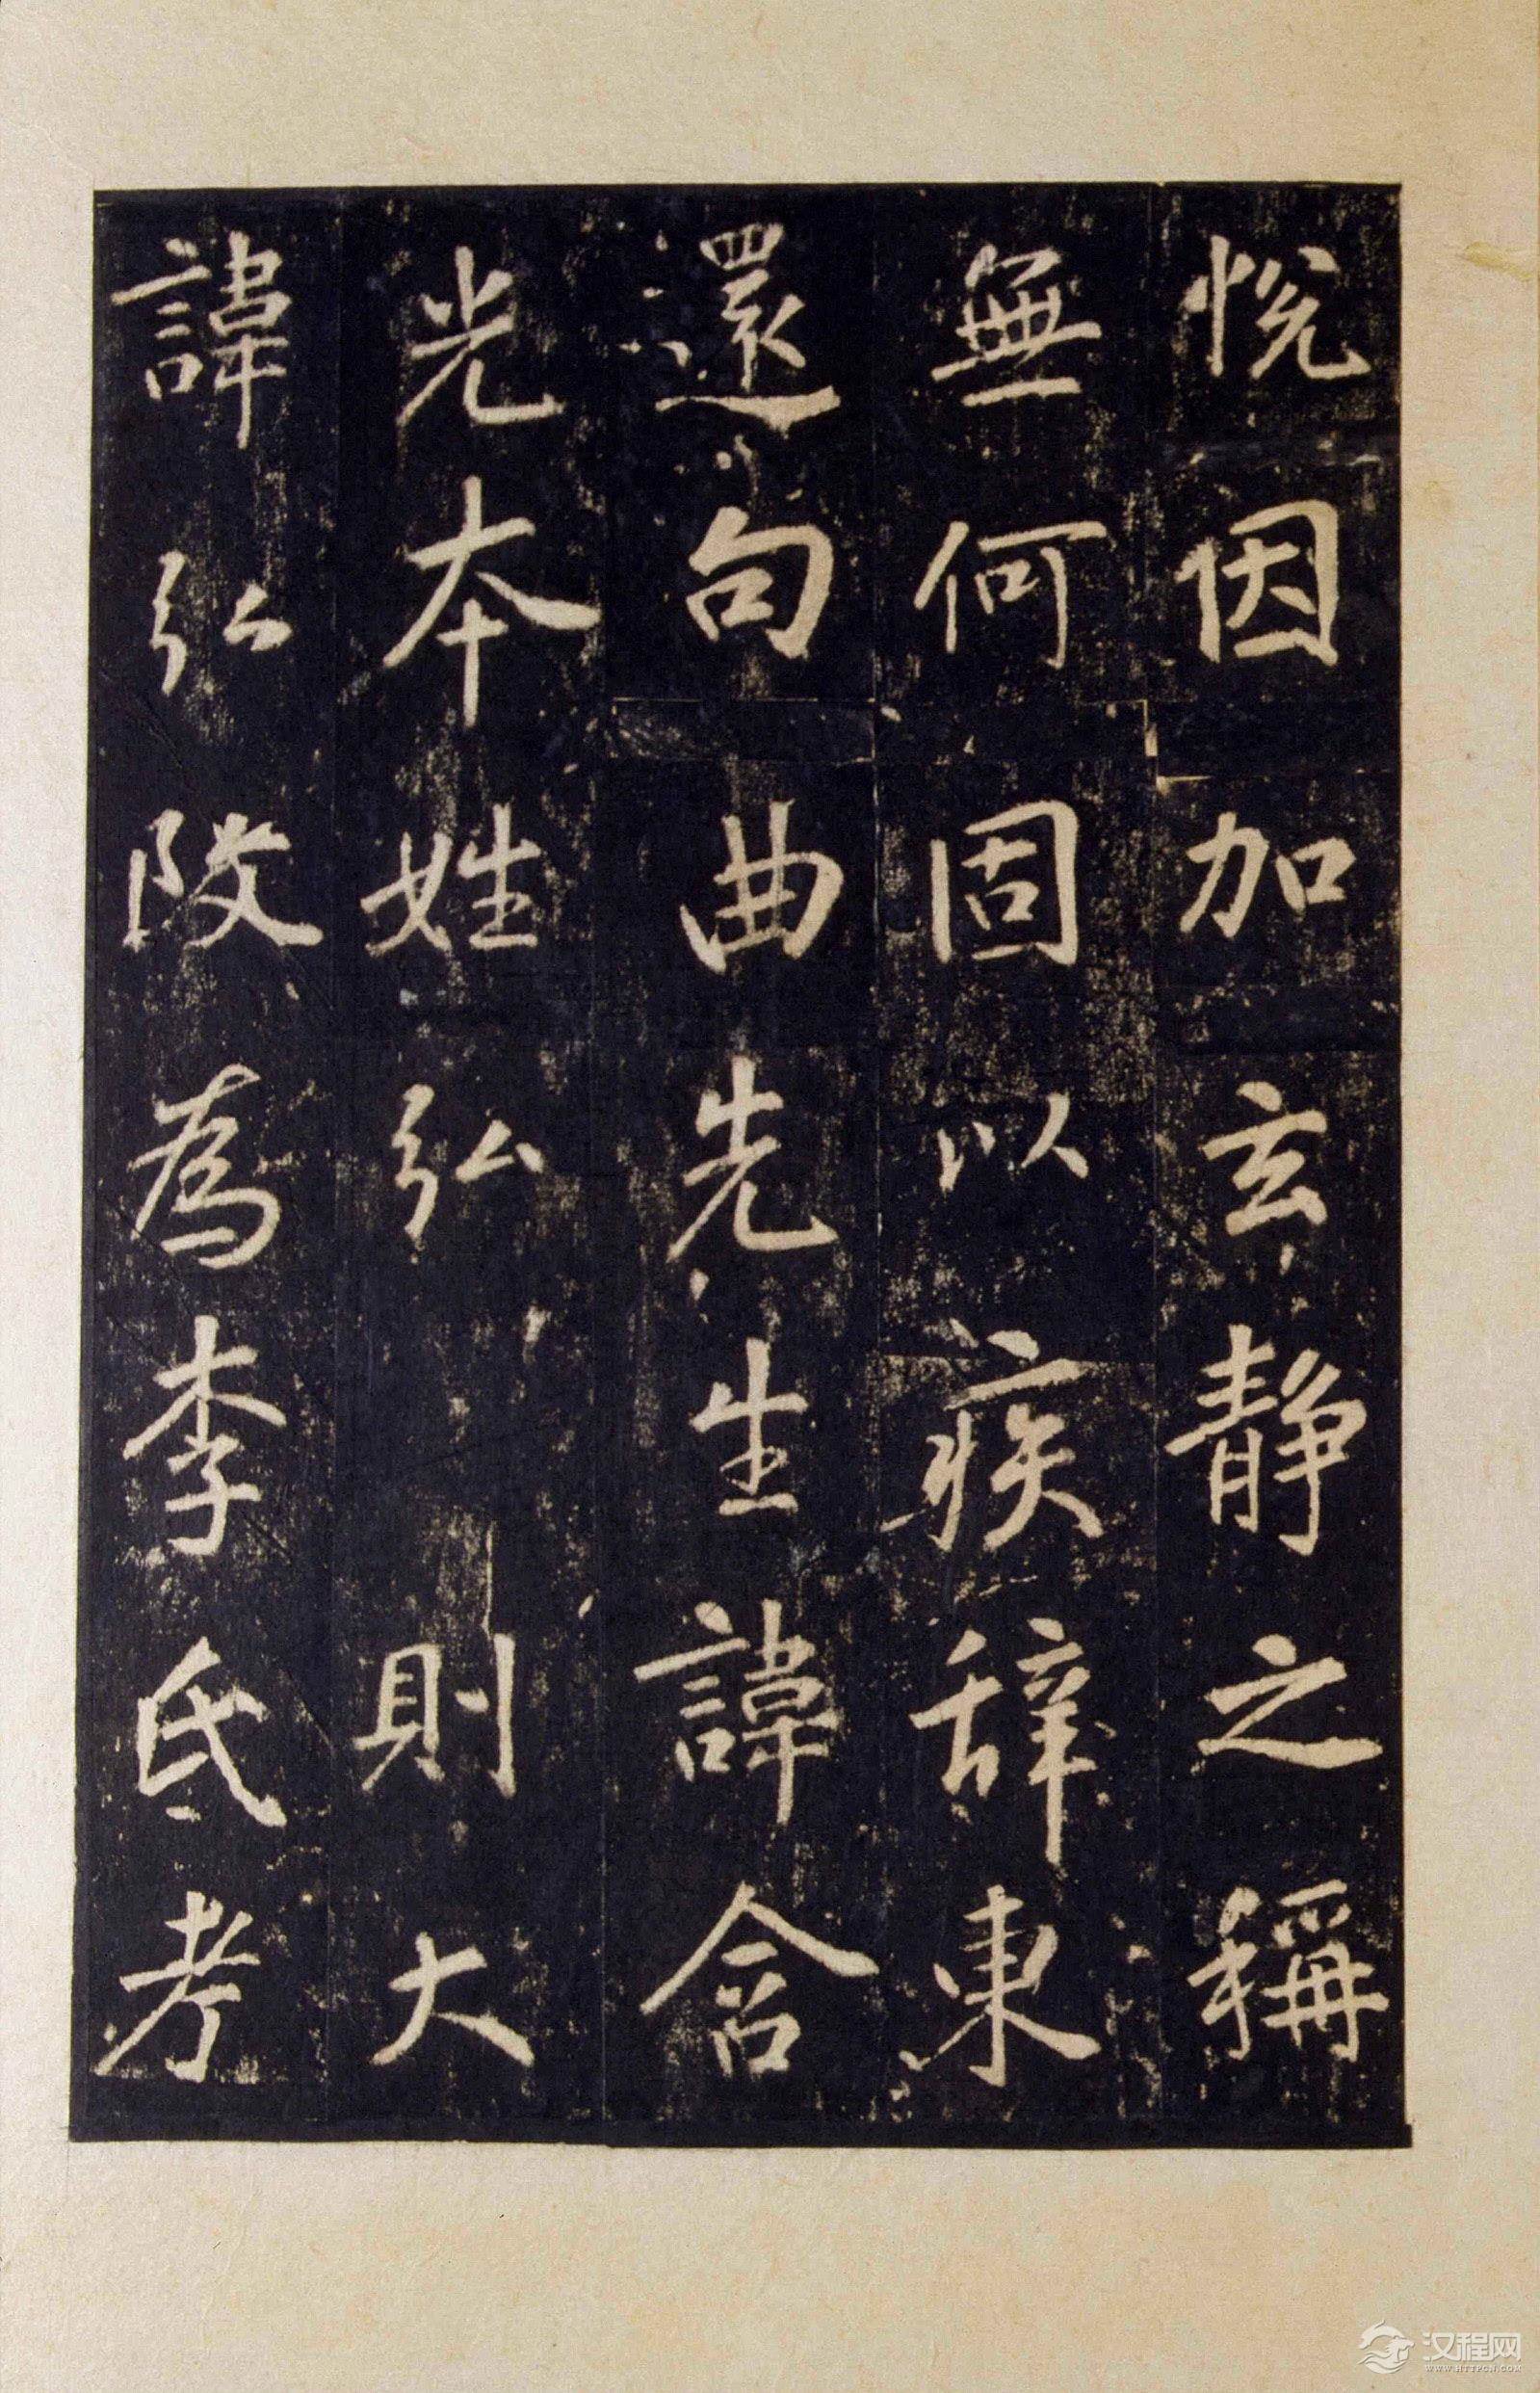 悅因加玄靜之稱
無何固以疾辞東
還句曲先生諱含
光本姓弘則大
諱弘改為李氏考
汉程网
WWW.HTTPCN.COM